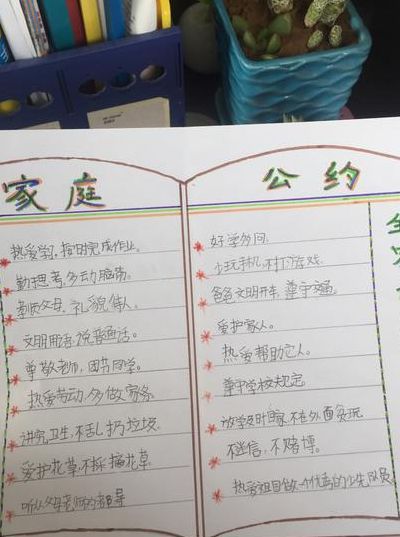 家庭
公约
热爱学习,按时完成作业。
勤思考,多动脑筋。
孝顺父母,礼貌待人。
文明用语,说普通话。
尊敬老师,团结同学。
热爱劳动,多做家务。
讲究卫生,不乱扔垃圾。
爱护花草,不採摘花草。
听从父母老师的教导
好学多问。
少玩手机,不打游戏。
爸爸文明开车,尊守交通。
爱护家人。
热爱帮助他人。
尊守学校规定。
放学及时回家,不在外面贪玩
不迷信,不赌博。
热爱祖国做一个优秀的少先队员
全